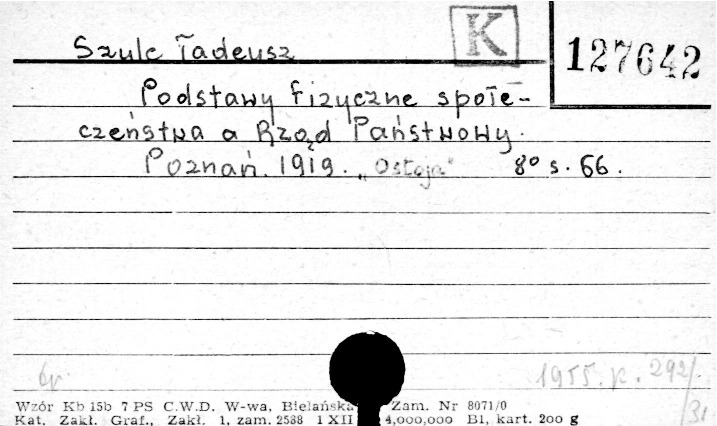 K
127642
Szulc Tadeusz
Podstawy fizyczne społe-
czeństwa a Rząd Państwowy.
Poznań. 1919. „Ostoja" 8° s. 66.
1955. k. 292/
/31
Wzór Kb 15b 7 PS C.W.D. W-wa, Bielańska Zam. Nr 8071/0
Kat. Zakł. Graf., Zakł. 1, zam. 2588 1 XII 4,000,000 B1, kart. 200 g